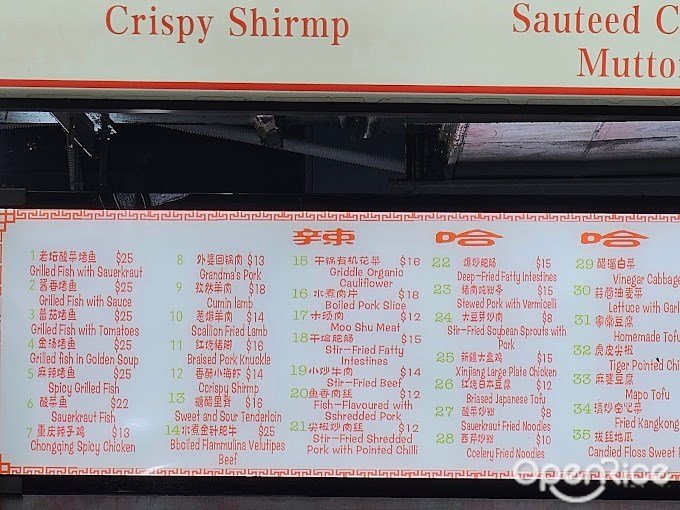 Crispy Shirmp
Sauteed C
Mutto
辣 哈 哈
1 老坛酸菜烤鱼 $25
Grilled Fish with Sauerkraut
2 酱香烤鱼 $25
Grilled Fish with Sauce
3 蕃茄烤鱼 $25
Grilled Fish with Tomatoes
4 金汤烤鱼 $25
Grilled fish in Golden Soup
5 麻辣烤鱼 $25
Spicy Grilled Fish
6 酸菜鱼 $22
Sauerkraut Fish
7 重庆辣子鸡 $13
Chongqing Spicy Chicken
8 外婆回锅肉 $13
Grandma's Pork
9 孜然羊肉 $18
Cumin lamb
10 葱爆羊肉 $18
Scallion Fried Lamb
11 红烧猪脚 $16
Braised Pork Knuckle
12 香酥小海虾 $14
Corispy Shrimp
13 糖醋里脊 $16
Sweet and Sour Tenderloin
14 水煮金针肥牛 $25
Bboiled Flammulina Velutipes
Beef
15 干锅有机花菜 $16
Griddle Organic
Cauliflower
16 水煮肉片 $18
Boiled Pork Slice
17 木须肉 $12
Moo Shu Meat
18 干煸肥肠 $15
Stir-Fried Fatty
Intestines
19 小炒牛肉 $14
Stir-Fried Beef
20 鱼香肉丝 $12
Fish-Flavoured with
Sshredded Pork
21 尖椒炒肉丝 $12
Stir-Fried Shredded
Pork with Pointed Chilli
22 爆炒肥肠 $15
Deep-Fried Fatty Intestines
23 烤肉炖粉条 $15
Stewed Pork with Vermicelli
24 大豆芽炒肉 $8
Stir-Fried Soybean Sprouts with
Pork
25 新疆大盘鸡 $15
Xinjiang Large Plate Chicken
26 红烧日本豆腐 $12
Briased Japanese Tofu
27 酸菜炒粉 $8
Sauerkraut Fried Noodles
28 西芹炒粉 $10
Ccelery Fried Noodles
29 醋溜白菜
Vinegar Cabbage
30 蒜蓉油麦菜
Lettuce with Garl
31 家常豆腐
Homemade Tofu
32 虎皮尖椒
Tiger Pointed Chi
33 麻婆豆腐
Mapo Tofu
34 清炒空心菜
Fried Kangkong
35 拔丝地瓜
Candied Floss Sweet P
OpenRice